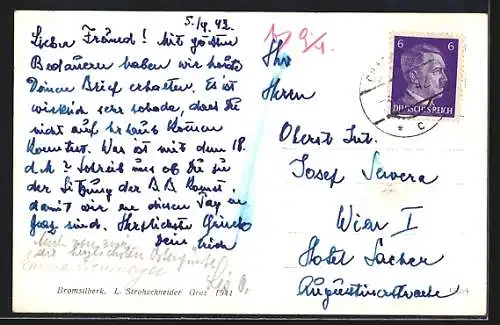 5./4. 42.
Lieber Fränd! Mit größtem
Bedauern haben wir heute
Deinen Brief erhalten. Es ist
wirklich sehr schade, dass du
nicht auf heraus komen
konntest. Was ist mit dem 18.
d. M? Schreib uns ob du zu
der Sitzung der B B komst.
damit wir an diesen Tag in
Graz sind. Herzlichste Grüsse
Dein Erich
Auch von mir
die herzlichsten
Bromsilberk. L. Strohschneider Graz 1941
9/4.
Ihr
Herrn
Oberst Int.
Josef Severa
Wien I
Hotel Sacher
Augustinerstrasse
6 6
DEUTSCHES REICH